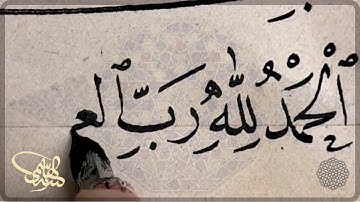 ٱلْحَمْدُ لِلَّهِ رَبِّ ٱلع